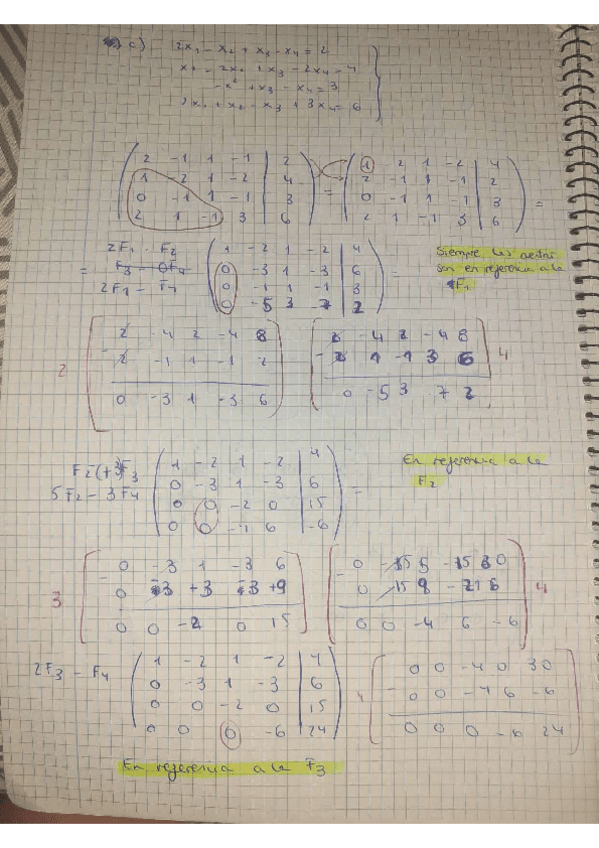 c) 2x₁ - x₂ + x₃ - x₄ = 2
x₁ - 2x₂ + x₃ - 2x₄ = 4
-x² + x₃ - x₄ = 3
2x₁ + x₂ - x₃ + 3x₄ = 6
2 -1 1 -1 | 2
1 -2 1 -2 | 4
0 -1 1 -1 | 3
2 1 -1 3 | 6
=
1 -2 1 -2 | 4
2 -1 1 -1 | 2
0 -1 1 -1 | 3
2 1 -1 3 | 6
=
= 2F₁ - F₂
F₃ - 0F₄
2F₁ - F₄
1 -2 1 -2 | 4
0 -3 1 -3 | 6
0 -1 1 -1 | 3
0 -5 3 -7 | 2
=
Siempre las restas
son en referencia a la
F₁
2
2 -4 2 -4 8
- 2 -1 1 -1 2
0 -3 1 -3 6
2 -4 2 -4 8
- 2 1 -1 3 6
0 -5 3 -7 2
4
F₂(+3)F₃
5F₂ - 3F₄
1 -2 1 -2 | 4
0 -3 1 -3 | 6
0 0 -2 0 | 15
0 0 -4 6 | -6
=
En referencia a la
F₂
3
0 -3 1 -3 6
- 0 -3 +3 -3 +9
0 0 -2 0 15
0 -15 5 -15 30
- 0 -15 9 -21 6
0 0 -4 6 -6
4
2F₃ - F₄
1 -2 1 -2 | 4
0 -3 1 -3 | 6
0 0 -2 0 | 15
0 0 0 -6 | 24
4
0 0 -4 0 30
- 0 0 -4 6 -6
0 0 0 -6 24
En referencia a la F₃